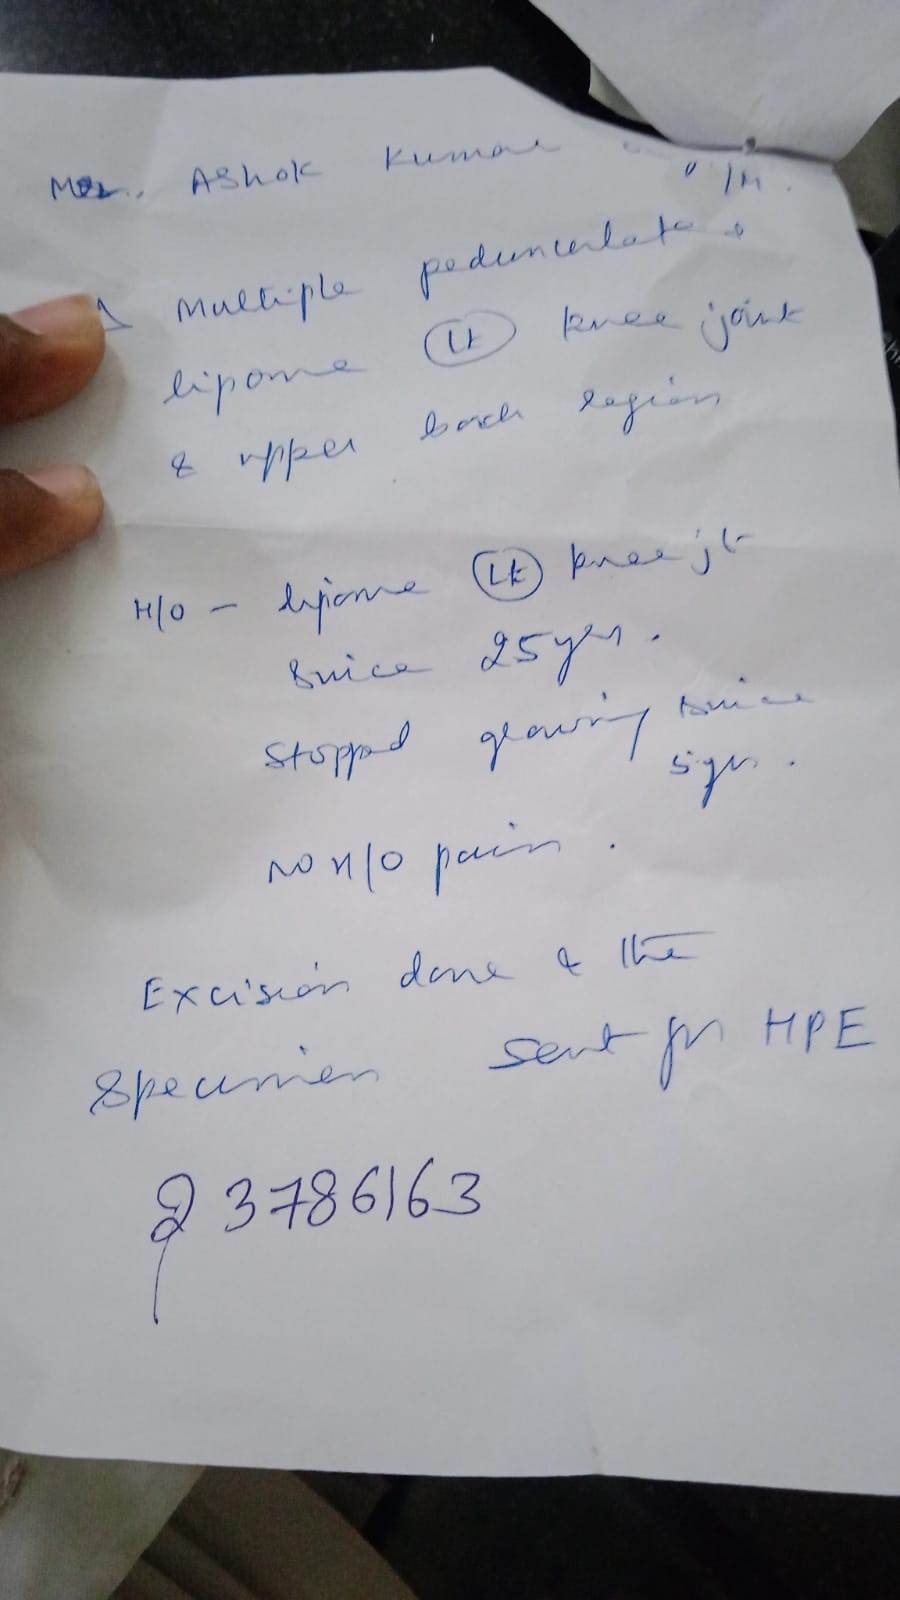 Mr. Ashok Kumar /M.
Δ Multiple pedunculated
lipoma (Lt) knee joint
& upper back region
H/O - lipoma (Lt) knee jt
since 25yrs.
Stopped growing since
5yrs.
NO H/O pain.
Excision done & the
specimen sent for HPE
3786163